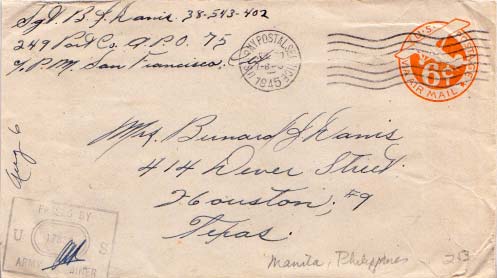 Sgt. B. L. Davis 38-543-402
249 Port Co. A.P.O. 75
c/o P.M. San Francisco,
U.S. ARMY POSTAL SERVICE
1945
U.S. POSTAGE
6¢
VIA AIR MAIL
Aug 6
Mrs. Bernard L. Davis
414 Dever Street
Houston, #9
Texas.
PASSED BY
U S
ARMY EXAMINER
Manila, Philippines